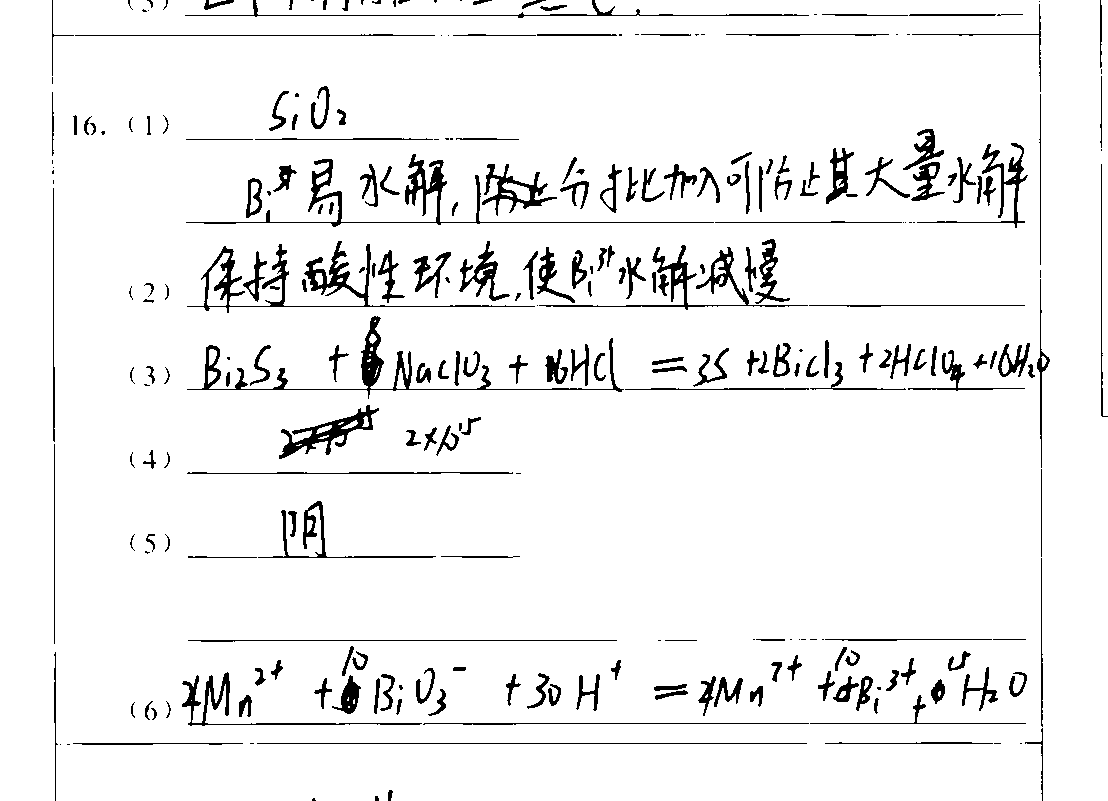 (3)
16. (1) SiO₂
Bi³⁺易水解,分批加入可防止其大量水解
(2) 保持酸性环境,使Bi³⁺水解减慢
(3) Bi₂S₃ + 8NaClO₃ + 16HCl = 3S + 2BiCl₃ + 2HClO₄ + 16H₂O
(4) 2×10¹⁵
(5) 阴
(6) 4Mn²⁺ + 10BiO₃⁻ + 30H⁺ = 4Mn⁷⁺ + 10Bi³⁺ + 15H₂O